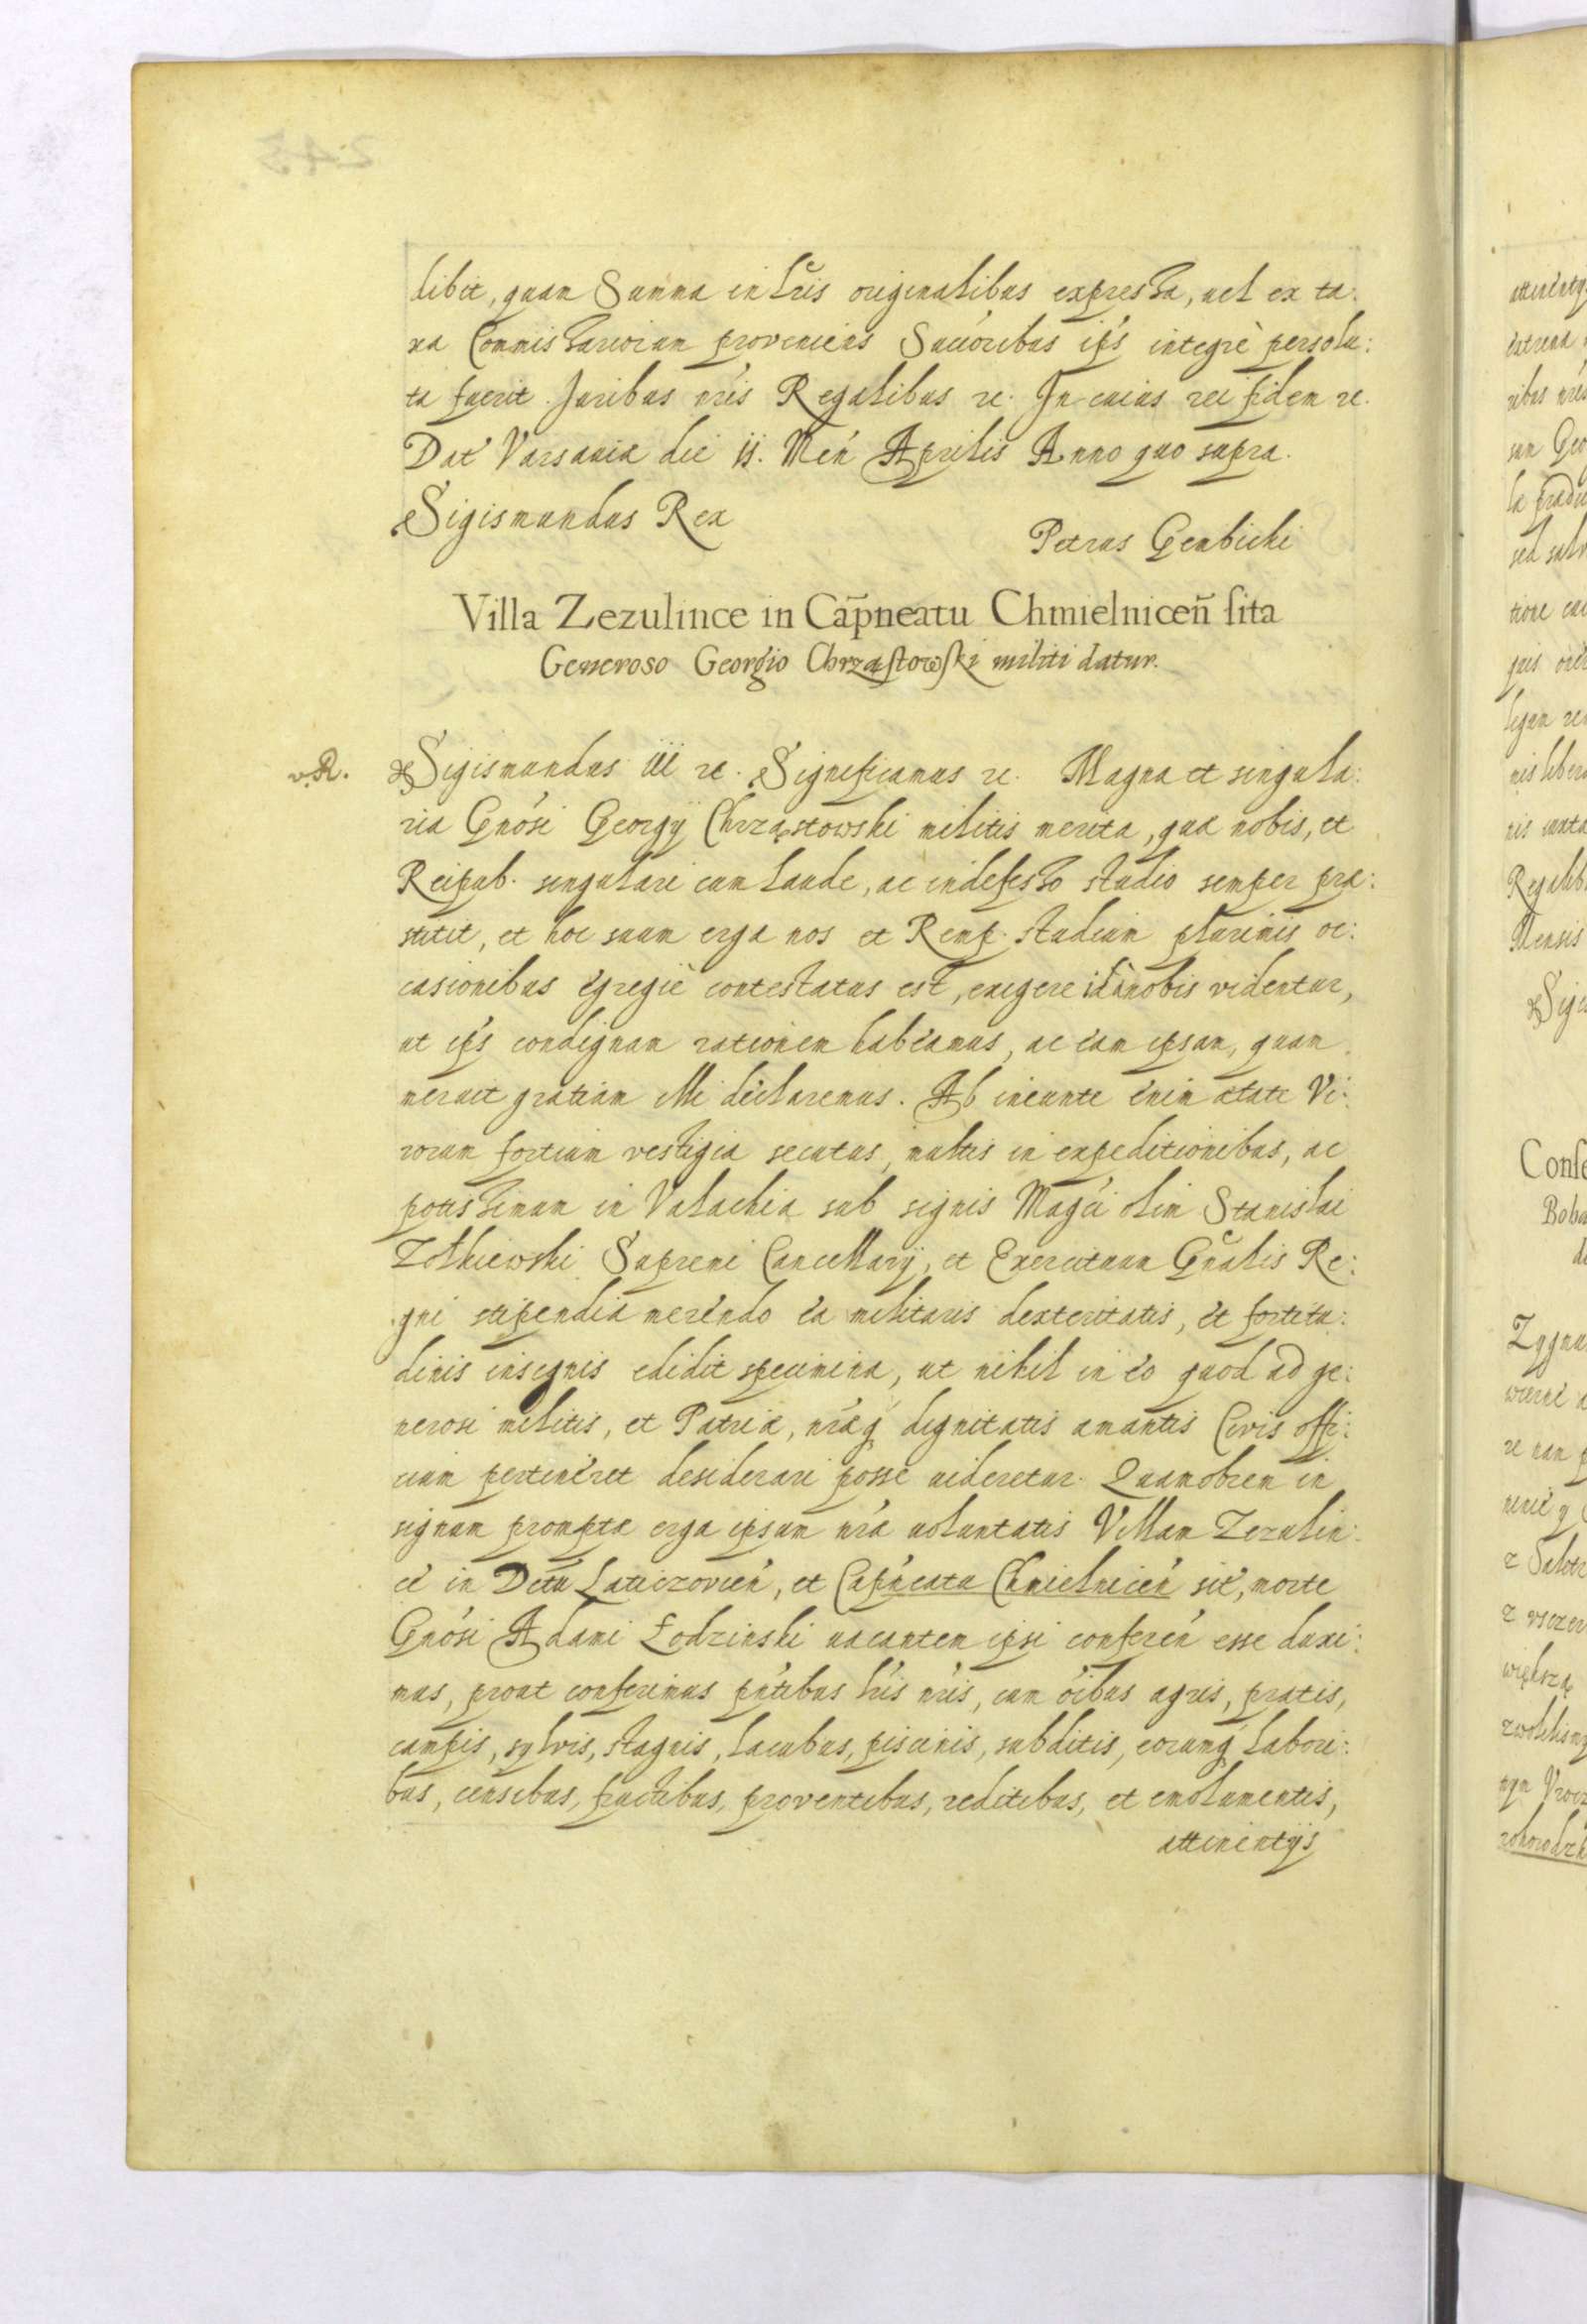 debit, quam Summa in lr̃is originalibus expressa, uel ex ta:
xa Commissariorum proveniens Succ̃oribus ip̃s integrè persolu:
ta fuerit. Juribus nr̃is Regalibus etc. In cuius rei fidem etc.
Dat Varsauiæ die ij. Men̄ Aprilis Anno quo supra.
Sigismundus Rex
Petrus Gembicki
Villa Zezulince in Cap̃neatu Chmielniceñ sita
Generoso Georgio Chrząstowski militi datur.
vR.
Sigismundus III etc. Significamus etc. Magna et singula:
ria Gnõsi Georgij Chrząstowski militis merita, quæ nobis, et
Reipub. singulari cum laude, ac indefesso studio semper præ:
stitit, et hoc suum erga nos et Remp. studium plurimis oc:
casionibus egregiè contestatus est, exigere id à nobis videntur,
ut ip̃s condignam rationem habeamus, ac eam ipsam, quam
meruit gratiam illi declaremus. Ab ineunte enim ætate Vi:
rorum fortium vestigia secutus, multis in expeditionibus, ac
potissimum in Valachia sub signis Mag̃ci olim Stanislai
Zołkiewski Supremi Cancellarij, et Exercituum Gñalis Re:
gni stipendia merendo ea militaris dexteritatis, et fortitu:
dinis insignis edidit specimina, ut nihil in eo quod ad ge:
nerosi militis, et Patriæ, nr̃æq dignitatis amantis Civis offi:
cium pertineret desiderari posse uideretur. Quamobrem in
signum promptæ erga ipsum nr̃æ uoluntatis Villam Zezulin:
ce in Dc̃tu Laticzovien̄, et Cap̃neatu Chmielnicen̄ sit̄, morte
Gnõsi Adami Łodzinski uacantem ipsi conferen̄ esse duxi:
mus, prout conferimus pñtibus lr̃is nr̃is, cum õibus agris, pratis,
campis, sylvis, stagnis, lacubus, piscinis, subditis, eorumq labori:
bus, censibus, fructibus, proventibus, reditibus, et emolumentis,
attinentijs